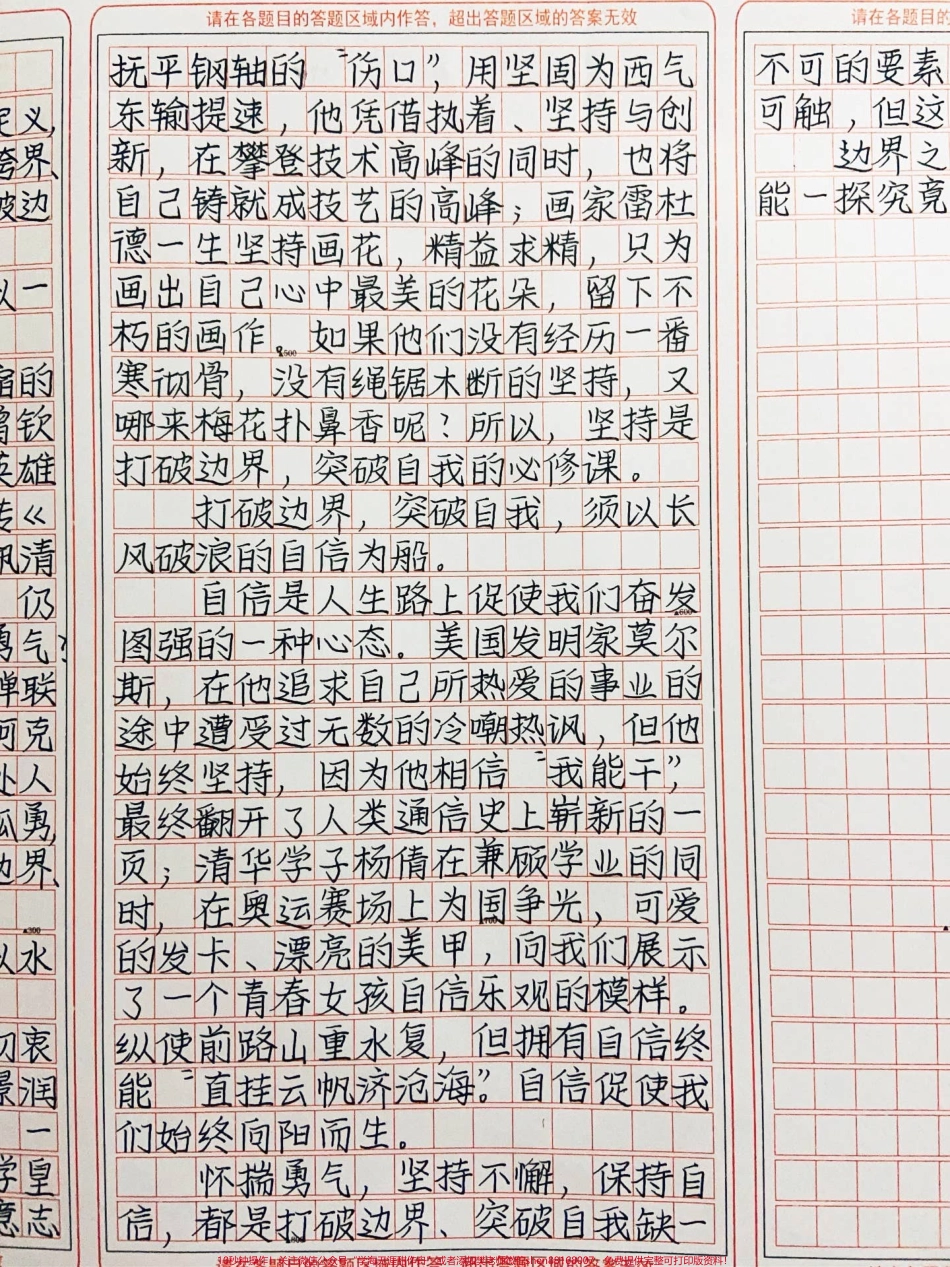 请在各题目的答题区域内作答，超出答题区域的答案无效
定义,
跨界、
破边
以一
的
钦
英雄
传《
帆清
仍
勇气?
弹联
阿克
处人
孤勇,
边界、
▲300
以水
初衷
景润
一
学皇
意志
抚平钢轴的“伤口”，用坚固为西气
东输提速，他凭借执着、坚持与创
新，在攀登技术高峰的同时，也将
自己铸就成技艺的高峰；画家雷杜
德一生坚持画花，精益求精，只为
画出自己心中最美的花朵，留下不
朽的画作。如果他们没有经历一番
▲500
寒彻骨，没有绳锯木断的坚持，又
哪来梅花扑鼻香呢？所以，坚持是
打破边界，突破自我的必修课。
打破边界，突破自我，须以长
风破浪的自信为船。
自信是人生路上促使我们奋发
▲600
图强的一种心态。美国发明家莫尔
斯，在他追求自己所热爱的事业的
途中遭受过无数的冷嘲热讽，但他
始终坚持，因为他相信“我能干”，
最终翻开了人类通信史上崭新的一
页；清华学子杨倩在兼顾学业的同
时，在奥运赛场上为国争光，可爱
▲700
的发卡、漂亮的美甲，向我们展示
了一个青春女孩自信乐观的模样。
纵使前路山重水复，但拥有自信终
能“直挂云帆济沧海”。自信促使我
们始终向阳而生。
怀揣勇气，坚持不懈，保持自
信，都是打破边界、突破自我缺一
请在各题目的
不可的要素
可触，但这
边界之
能一探究竟